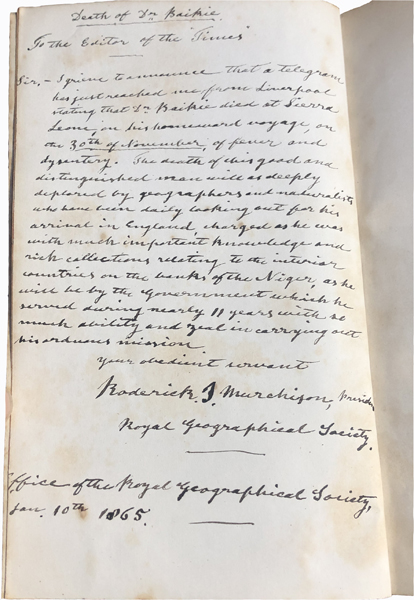 Death of Dr Baikie
To the Editor of the "Times"
Sir, – I grieve to announce that a telegram
has just reached me from Liverpool
stating that Dr Baikie died at Sierra
Leone, on his homeward voyage, on
the 30th of November, of fever and
dysentery. The death of this good and
distinguished man will be as deeply
deplored by geographers and naturalists
who have been daily looking out for his
arrival in England, charged as he was
with much important knowledge and
rich collections relating to the interior
countries on the banks of the Niger, as he
will be by the Government which he
served during nearly 11 years with so
much ability and zeal in carrying out
his arduous mission
Your obedient servant
Roderick I. Murchison, Presid
Royal Geographical Society.
Office of the Royal Geographical Society,
Jan. 10th 1865.